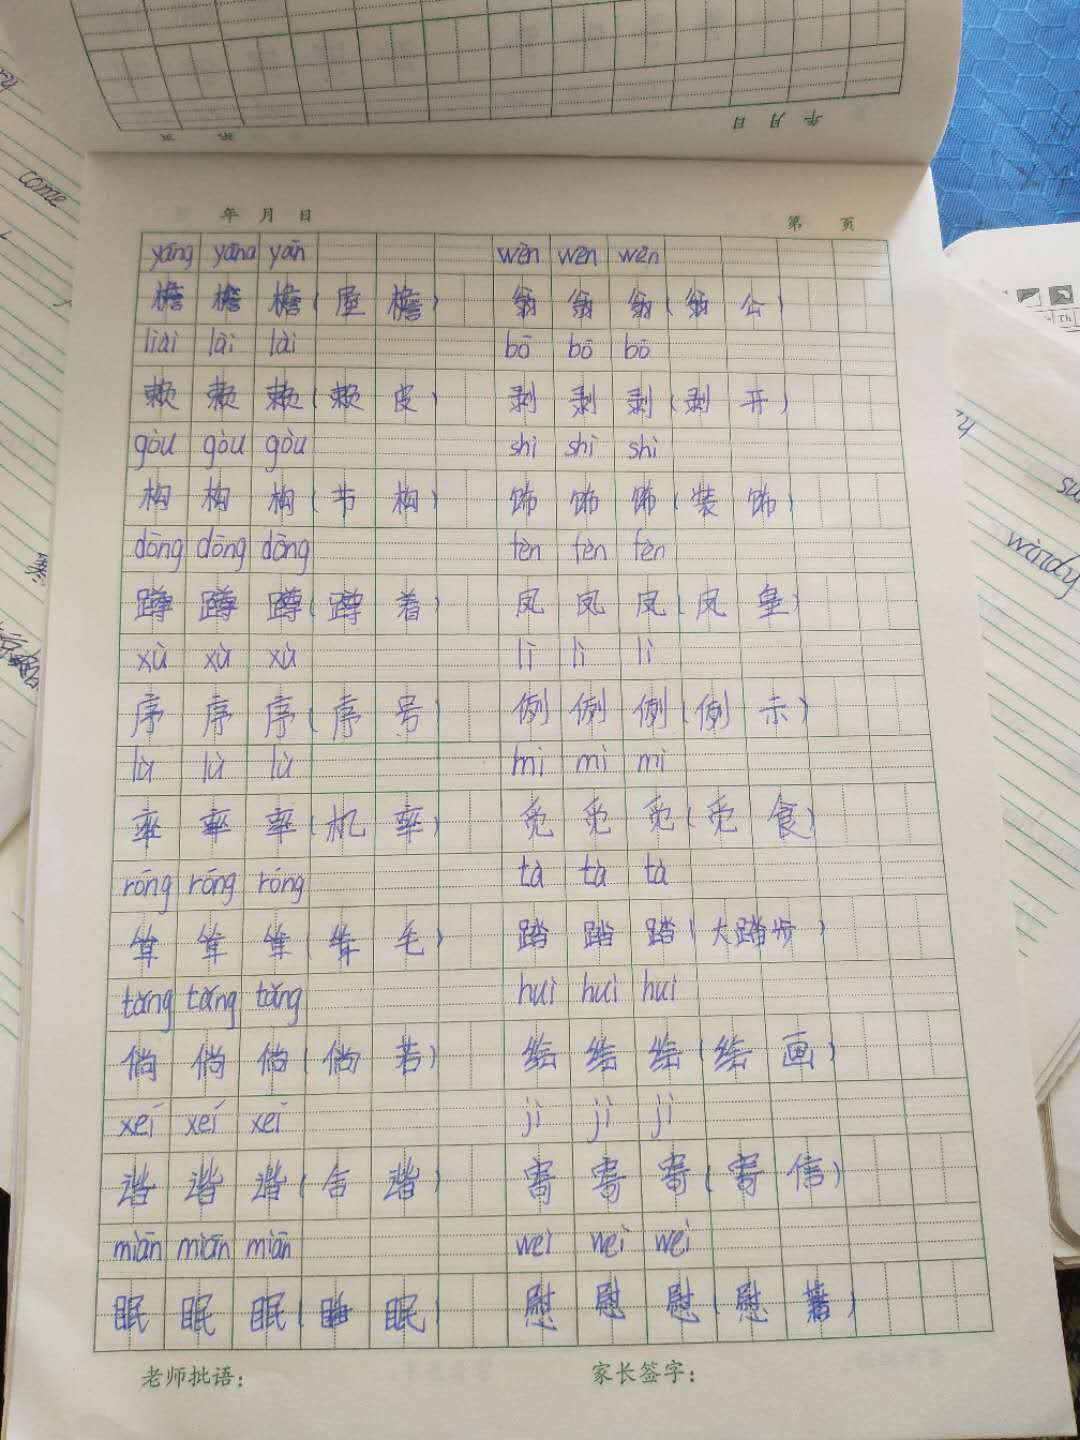 come
年 月 日
第 页
年 月 日
第 页
yāng yāng yān wēn wēn wēn
檐 檐 檐(屋 檐) 翁 翁 翁(翁 公)
liài lài lài bō bō bō
赖 赖 赖(赖 皮) 剥 剥 剥(剥 开)
gòu gòu gòu shì shì shì
构 构 构(节 构) 饰 饰 饰(装 饰)
dōng dōng dōng fèn fèn fèn
蹲 蹲 蹲(蹲 着) 凤 凤 凤(凤 皇)
xù xù xù lì lì lì
序 序 序(序 号) 例 例 例(例 示)
lǜ lǜ lǜ mì mì mì
率 率 率(机 率) 觅 觅 觅(觅 食)
róng róng róng tà tà tà
耸 耸 耸(耸 毛) 踏 踏 踏(大踏步)
tǎng tǎng tǎng huì huì huì
倘 倘 倘(倘 若) 绘 绘 绘(绘 画)
xeí xeí xeí jì jì jì
谐 谐 谐(合 谐) 寄 寄 寄(寄 信)
miān miān miān wèi wèi wèi
眠 眠 眠(睡 眠) 慰 慰 慰(慰 藉)
老师批语： 家长签字：
Th
su
windy